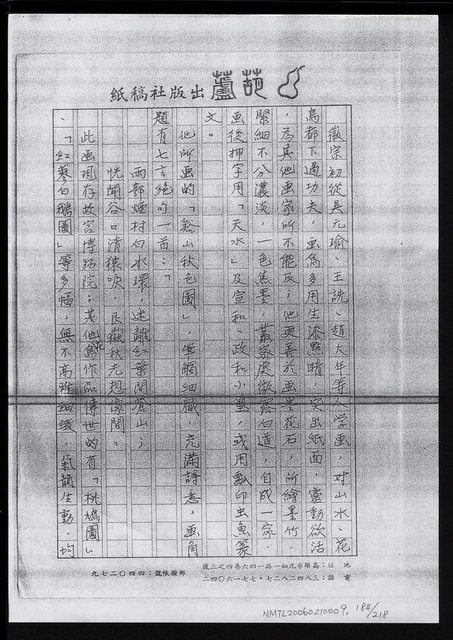 葫蘆出版社稿紙
徽宗初從吳元瑜、王詵、趙大年等人學画，對山水、花
鳥都下過功夫，画鳥多用生漆點睛，突出紙面，靈動欲活
，為其他画家所不能及，他更善於画墨花石，所繪墨竹，
緊細不分濃淡，一色焦墨，叢密處微露白道，自成一家，
画後押字用「天水」及宣和、政和小璽，或用瓢印虫魚篆
文。
他所画的「谿山秋色圖」，筆觸細膩，充滿詩意，画角
題有七言絕句一首：「
雨郭煙村白水環，迷離紅葉間蒼山；
恍聞谷口清猿唳，艮嶽秋光想像間。
此画現存故宮博物院；其他作品傳世的有「桃鳩圖」
、「紅蓼白鵝圖」等多幅，無不高雅細緻，氣韻生動，均
地址：高雄市九如一路一四六巷四之三號
電話：三八四二八二七•七七一六〇四二
郵撥帳號：四四〇二七九
NMTL20060210009, 184/218